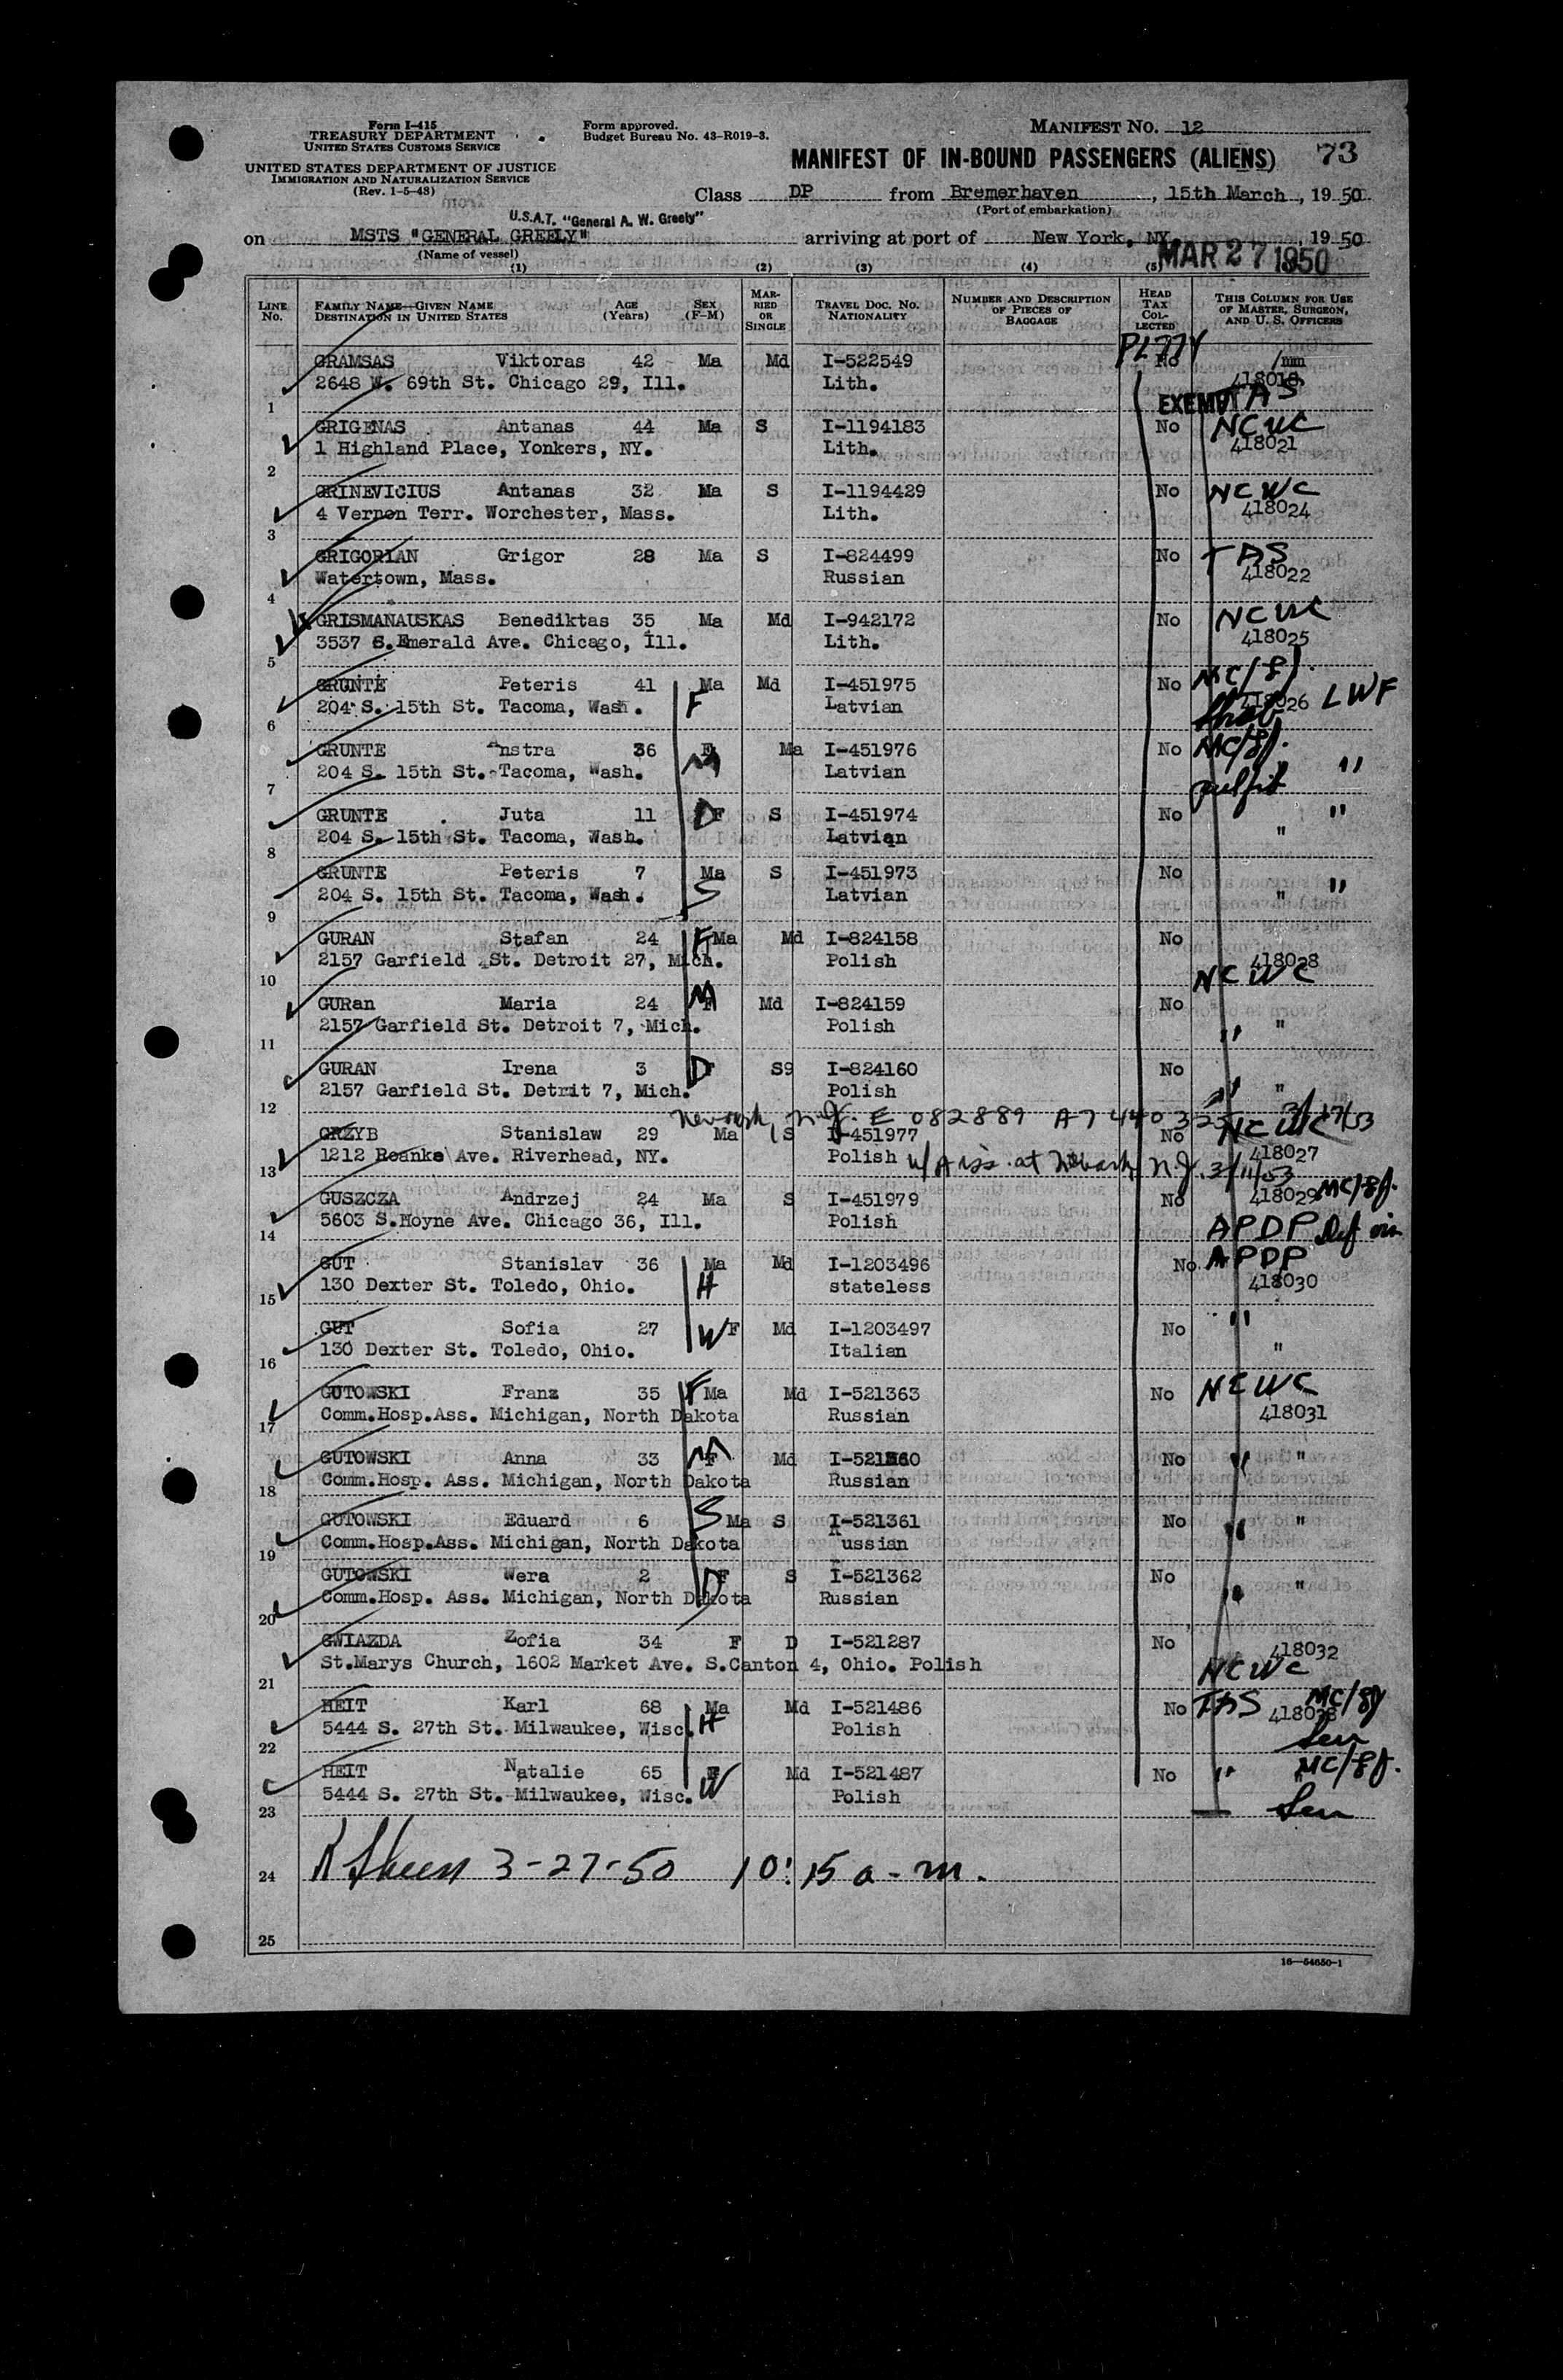 Form I-415
TREASURY DEPARTMENT
UNITED STATES CUSTOMS SERVICE
UNITED STATES DEPARTMENT OF JUSTICE
IMMIGRATION AND NATURALIZATION SERVICE
(Rev. 1-5-48)
Form approved.
Budget Bureau No. 43-R019-3.
MANIFEST NO. 12
MANIFEST OF IN-BOUND PASSENGERS (ALIENS) 73
Class DP from Bremerhaven, 15th March, 19 50
(Port of embarkation)
U.S.A.T. "General A. W. Greely"
on MSTS "GENERAL GREELY" arriving at port of New York, NY, 19 50
(Name of vessel)
MAR 27 1950
(1) (2) (3) (4) (5)
LINE No. FAMILY NAME—GIVEN NAME DESTINATION IN UNITED STATES AGE (Years) SEX (F-M) MARRIED OR SINGLE TRAVEL DOC. NO. NATIONALITY NUMBER AND DESCRIPTION OF PIECES OF BAGGAGE HEAD TAX COLLECTED THIS COLUMN FOR USE OF MASTER, SURGEON, AND U. S. OFFICERS
GRAMSAS Viktoras 42 Ma Md I-522549 No
2648 W. 69th St. Chicago 29, Ill. Lith. 418018
1 EXEMPT
GRIGENAS Antanas 44 Ma S I-1194183 No NCWC
1 Highland Place, Yonkers, NY. Lith. 418021
2
GRINEVICIUS Antanas 32 Ma S I-1194429 No NCWC
4 Vernon Terr. Worchester, Mass. Lith. 418024
3
GRIGORIAN Grigor 28 Ma S I-824499 No TAS
Watertown, Mass. Russian 418022
4
GRISMANAUSKAS Benediktas 35 Ma Md I-942172 No NCWC
3537 S.Emerald Ave. Chicago, Ill. Lith. 418025
5
GRUNTE Peteris 41 Ma Md I-451975 No MC/
204 S. 15th St. Tacoma, Wash. F Latvian 418026 LWF
6
GRUNTE Anstra 36 F Ma I-451976 No MC/
204 S. 15th St. Tacoma, Wash. M Latvian "
7
GRUNTE Juta 11 D F S I-451974 No "
204 S. 15th St. Tacoma, Wash. Latvian "
8
GRUNTE Peteris 7 Ma S I-451973 No "
204 S. 15th St. Tacoma, Wash. S Latvian "
9
GURAN Stafan 24 F Ma Md I-824158 No
2157 Garfield St. Detroit 27, Mich. Polish 418028
10 NCWC
GURan Maria 24 M F Md I-824159 No
2157 Garfield St. Detroit 7, Mich. Polish " "
11
GURAN Irena 3 D F S9 I-824160 No
2157 Garfield St. Detrit 7, Mich. Polish " "
12 Newark, N.J. E 082889 A7 440 325 3/17/53
GRZYB Stanislaw 29 Ma S I-451977 No NCWC
1212 Roanke Ave. Riverhead, NY. Polish 418027
13 at Newark N.J. 3/11/53
GUSZCZA Andrzej 24 Ma S I-451979 No 418029 MC/
5603 S.Hoyne Ave. Chicago 36, Ill. Polish APDP
14
GUT Stanislav 36 Ma Md I-1203496 No APDP
130 Dexter St. Toledo, Ohio. H stateless 418030
15
GUT Sofia 27 W F Md I-1203497 No "
130 Dexter St. Toledo, Ohio. Italian "
16
GUTOWSKI Franz 35 F Ma Md I-521363 No NCWC
Comm.Hosp.Ass. Michigan, North Dakota Russian 418031
17
GUTOWSKI Anna 33 M F Md No " "
Comm.Hosp. Ass. Michigan, North Dakota Russian
18
GUTOWSKI Eduard 6 S Ma S I-521361 No " "
Comm.Hosp.Ass. Michigan, North Dakota Russian
19
GUTOWSKI Wera 2 D F S I-521362 No " "
Comm.Hosp. Ass. Michigan, North Dakota Russian
20
GWIAZDA Zofia 34 F D I-521287 No 418032
St.Marys Church, 1602 Market Ave. S.Canton 4, Ohio. Polish NCWC
21
HEIT Karl 68 Ma Md I-521486 No TAS MC/
5444 S. 27th St. Milwaukee, Wisc. H Polish Sen
22
HEIT Natalie 65 F Md I-521487 No " " MC/
5444 S. 27th St. Milwaukee, Wisc. W Polish Sen
23
24 3-27-50 10:15 a.m.
25
16—54650-1